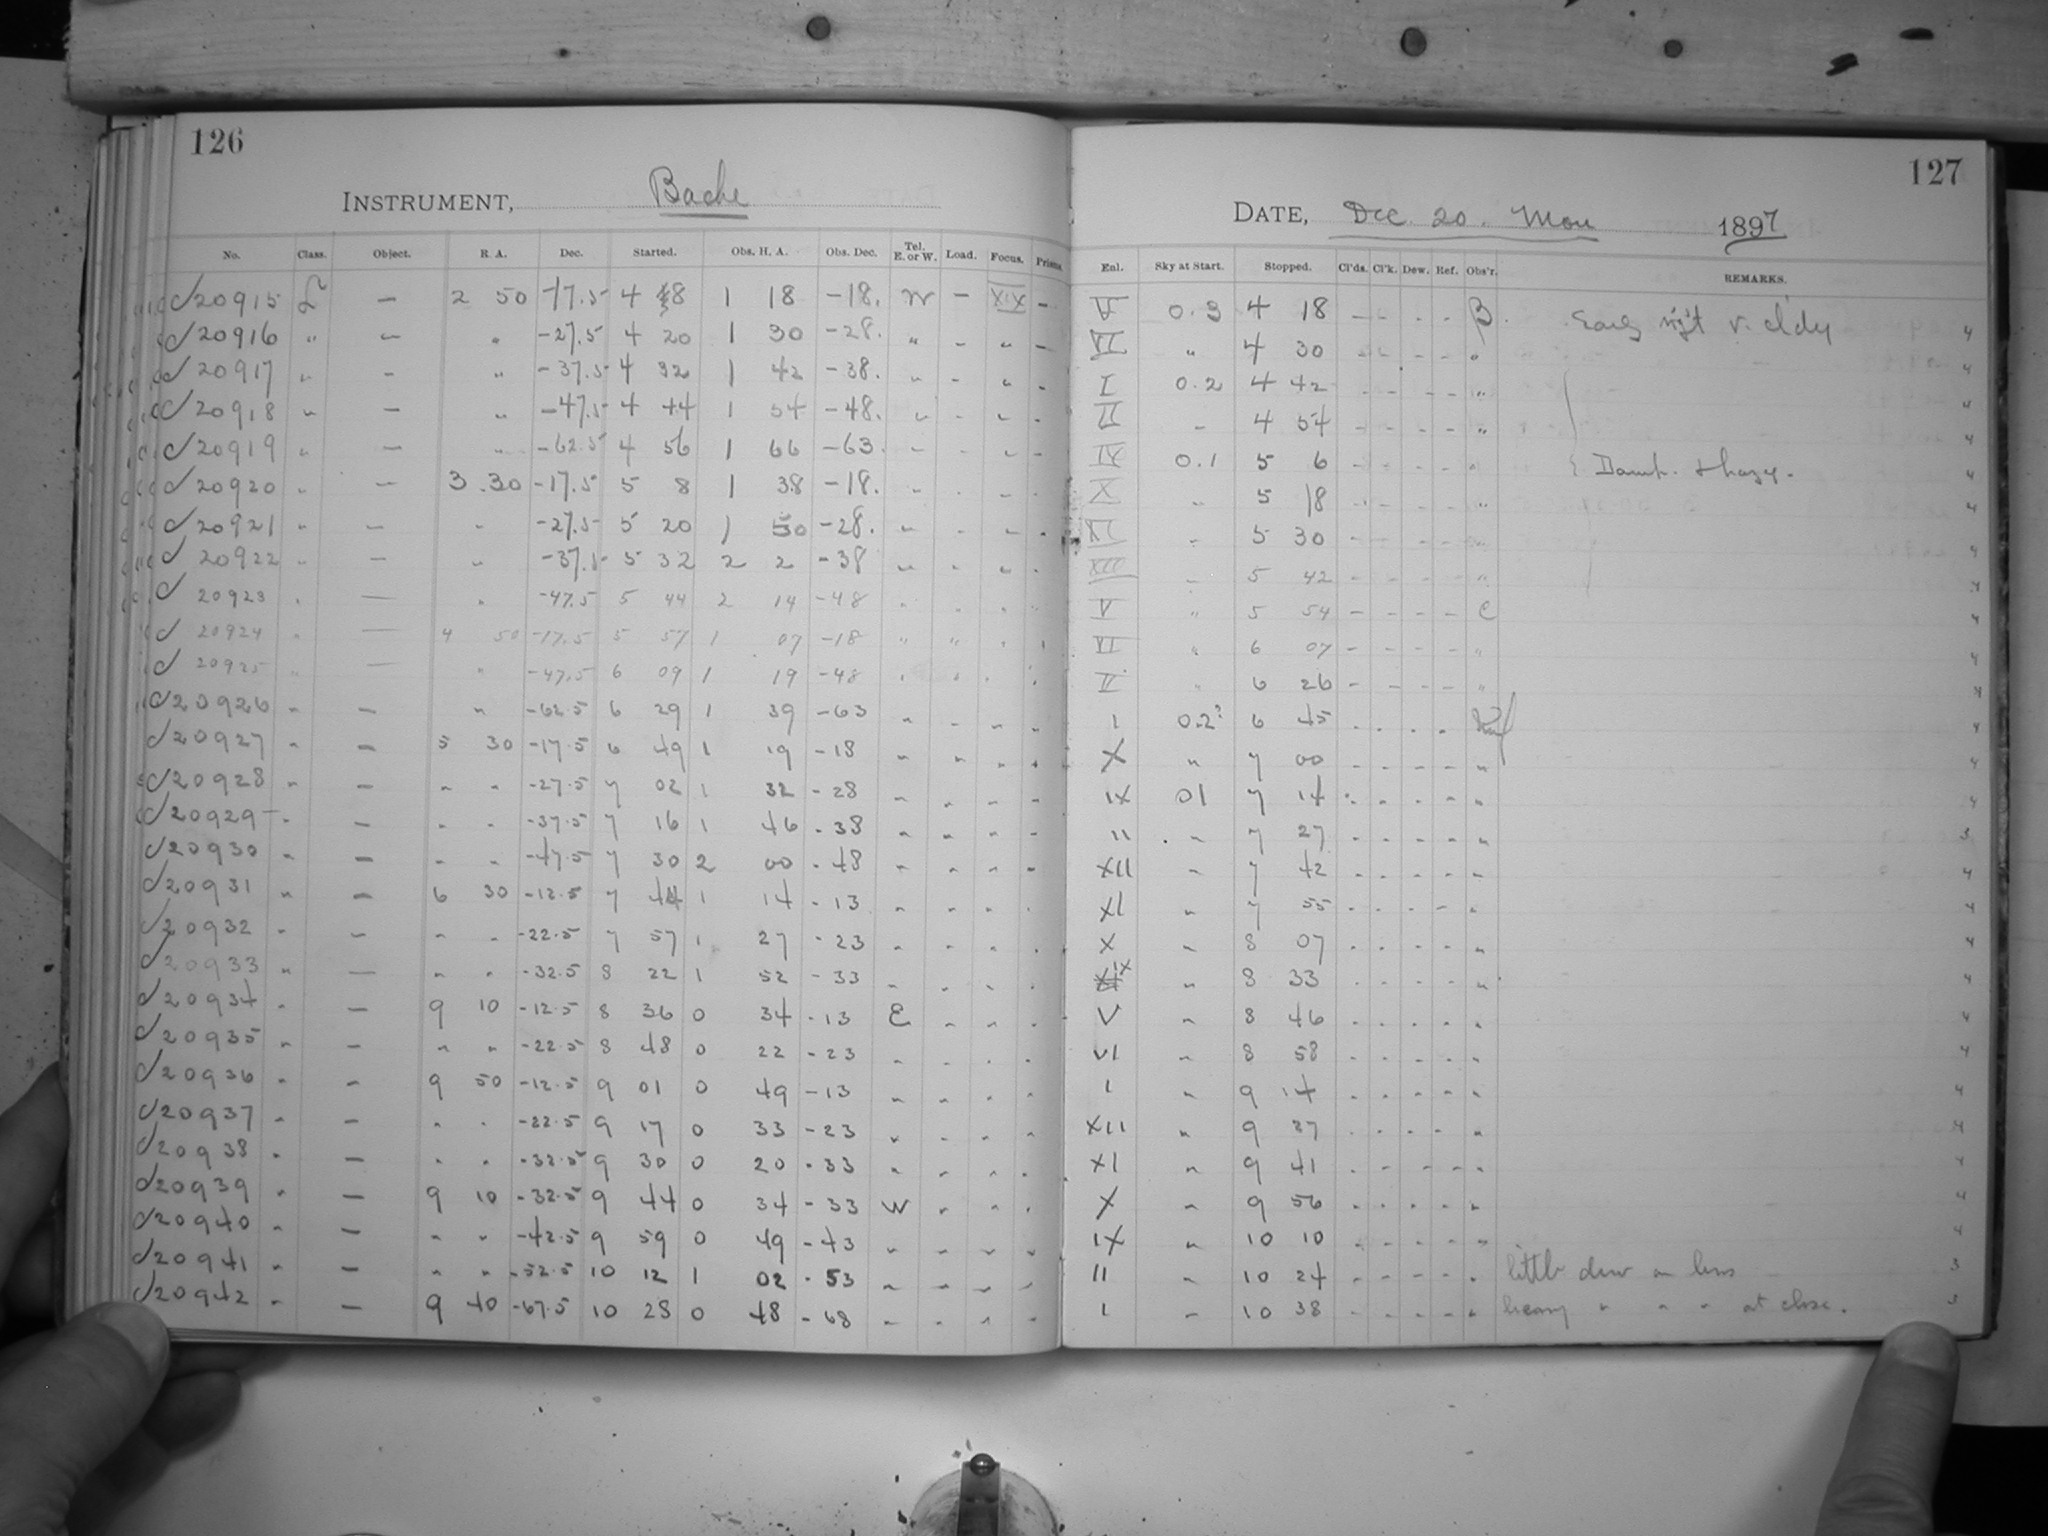 126
INSTRUMENT, Bache
No. Class. Object. R. A. Dec. Started. Obs. H. A. Obs. Dec. Tel. E. or W. Load. Focus. Prisms.
20915 L — 2 50 -17.5 4 8 1 18 -18. W – XIX –
20916 " – " -27.5 4 20 1 30 -28. " – " –
20917 " – " -37.5 4 32 1 42 -38. " – " –
20918 " – " -47.5 4 44 1 54 -48. " – " –
20919 " – " -62.5 4 56 1 66 -63. " – " –
20920 " – 3.30 -17.5 5 8 1 38 -18. " – " –
20921 " – " -27.5 5 20 1 50 -28. " – " –
20922 " – " -37.5 5 32 2 2 -38 " – " –
20923 " — " -47.5 5 44 2 14 -48 " " " "
20924 " — 4 50 -17.5 5 57 1 07 -18 " " " "
20925 " — " -47.5 6 09 1 19 -48 " " " "
20926 " – " -62.5 6 29 1 39 -63 " " " "
20927 " – 5 30 -17.5 6 49 1 19 -18 " " " "
20928 " – " " -27.5 7 02 1 32 -28 " " " "
20929 " – " " -37.5 7 16 1 46 -38 " " " "
20930 " – " " -47.5 7 30 2 00 -48 " " " "
20931 " – 6 30 -12.5 7 44 1 14 -13 " " "
20932 " – " " -22.5 7 57 1 27 -23 " " " "
20933 " – " " -32.5 8 22 1 52 -33 " " " "
20934 " – 9 10 -12.5 8 36 0 34 -13 E " " "
20935 " – " " -22.5 8 48 0 22 -23 " " " "
20936 " – 9 50 -12.5 9 01 0 49 -13 " " " "
20937 " – " " -22.5 9 17 0 33 -23 " " " "
20938 " – " " -32.5 9 30 0 20 -33 " " " "
20939 " – 9 10 -32.5 9 44 0 34 -33 W " " "
20940 " – " " -42.5 9 59 0 49 -43 " " " "
20941 " – " " -52.5 10 12 1 02 -53 " " " "
20942 " – 9 40 -67.5 10 28 0 48 -68 " " " "
127
DATE, Dec. 20. Mon 1897
Enl. Sky at Start. Stopped. Cl'ds. Cl'k. Dew. Ref. Obs'r. REMARKS.
V 0.3 4 18 – – – – B. Early night v. cldy 4
VI " 4 30 – – – – " 4
I 0.2 4 42 – – – – " 4
II " 4 54 – – – – " 4
IX 0.1 5 6 – – – – " Damp. & hazy. 4
X " 5 18 – – – – " 4
XI " 5 30 – – – – " 4
XIII " 5 42 – – – – " 4
V " 5 54 – – – – C 4
VI " 6 07 – – – – " 4
II " 6 26 – – – – " 4
I 0.2? 6 45 – – – – 4
X " 7 00 – – – – " 4
IX 01 7 14 – – – – " 4
II " 7 27 – – – – " 3
XII " 7 42 – – – – " 4
XI " 7 55 – – – – " 4
X " 8 07 – – – – " 4
IX " 8 33 – – – – " 4
V " 8 46 – – – – " 4
VI " 8 58 – – – – " 4
I " 9 14 – – – – " 4
XII " 9 27 – – – – " 4
XI " 9 41 – – – – " 4
X " 9 56 – – – – " 4
IX " 10 10 – – – – " 4
II " 10 24 – – – – " little dew on lens 3
I " 10 38 – – – – " heavy " " " at close. 3